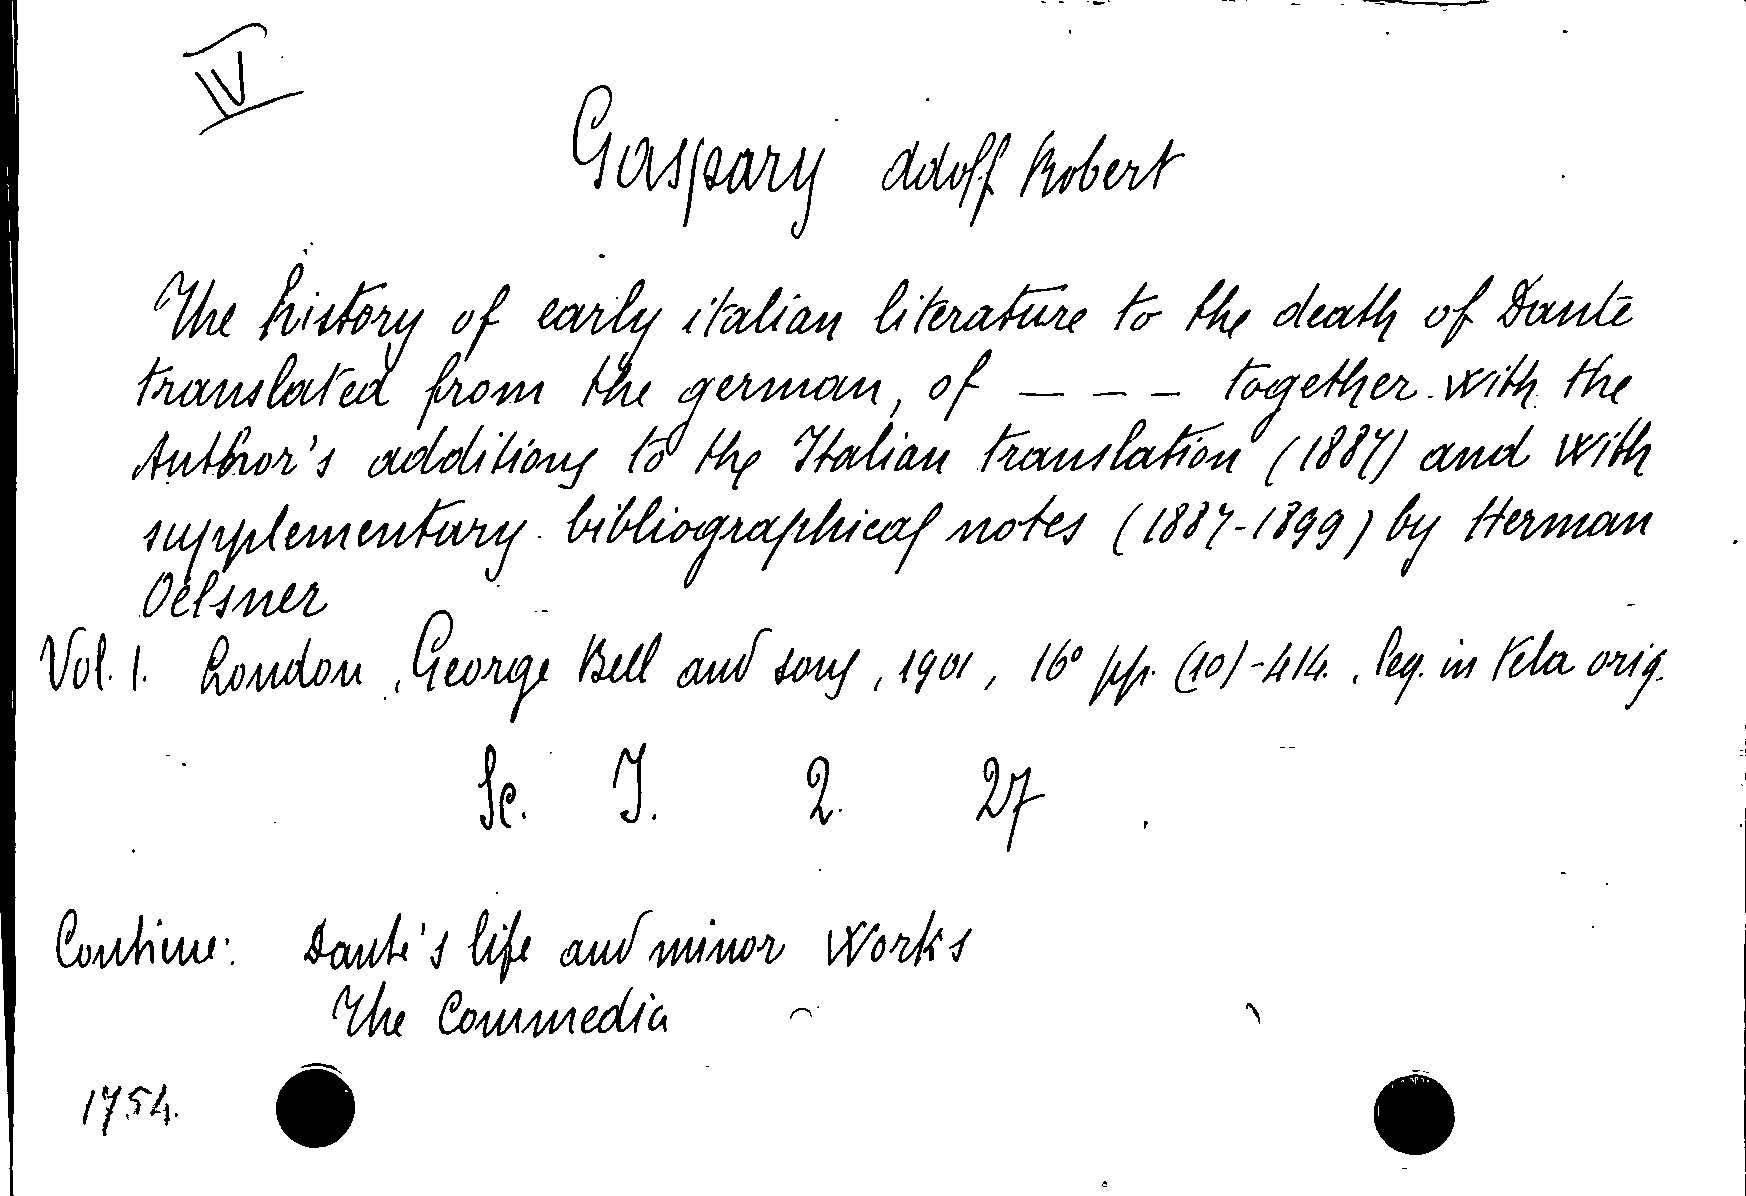 IV
Gaspary Adolf Robert
The history of early italian literature to the death of Dante
translated from the german, of — — — together with the
Author's additions to the Italian translation (1887) and with
supplementary bibliographical notes (1887-1899) by Herman
Oelsner
Vol. 1. London, George Bell and sons, 1901, 16° pp. (10)-414. , leg. in tela orig.
Sc. I. 2. 27
Contiene: Dante's life and minor Works
The Commedia
1754.